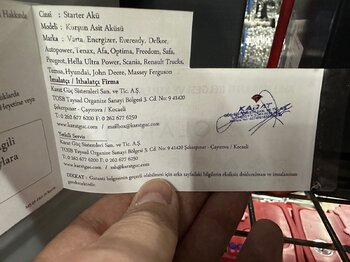 Hakkında
Cinsi : Starter Akü
Modeli : Kurşun Asit Aküsü
Marka : Varta, Energizer, Eveready, Delkor,
Autopower, Tenax, Afa, Optima, Freedom, Safa,
Peugeot, Hella Ultra Power, Scania, Renault Trucks,
Temsa, Hyundai, John Deere, Massey Ferguson
İmalatçı / İthalatçı Firma
Karat Güç Sistemleri San. ve Tic. A.Ş.
TOSB Taysad Organize Sanayi Bölgesi 3. Cd. No:9 41420
Şekerpınar - Çayırova / Kocaeli
T: 0 262 677 6200 F: 0 262 677 6250
www.karatguc.com / mailbox@karatguc.com
Yetkili Servis
Karat Güç Sistemleri San. ve Tic. A.Ş.
TOSB Taysad Organize Sanayi Bölgesi 3. Cd. No:9 41420
Şekerpınar - Çayırova / Kocaeli
T: 0 262 677 6200 F: 0 262 677 6250
www.karatguc.com / ssh@karatguc.com
DİKKAT : Garanti belgesinin geçerli olabilmesi için arka sayfadaki bilgilerin eksiksiz doldurulması ve imzalanması
gerekmektedir.
KARAT